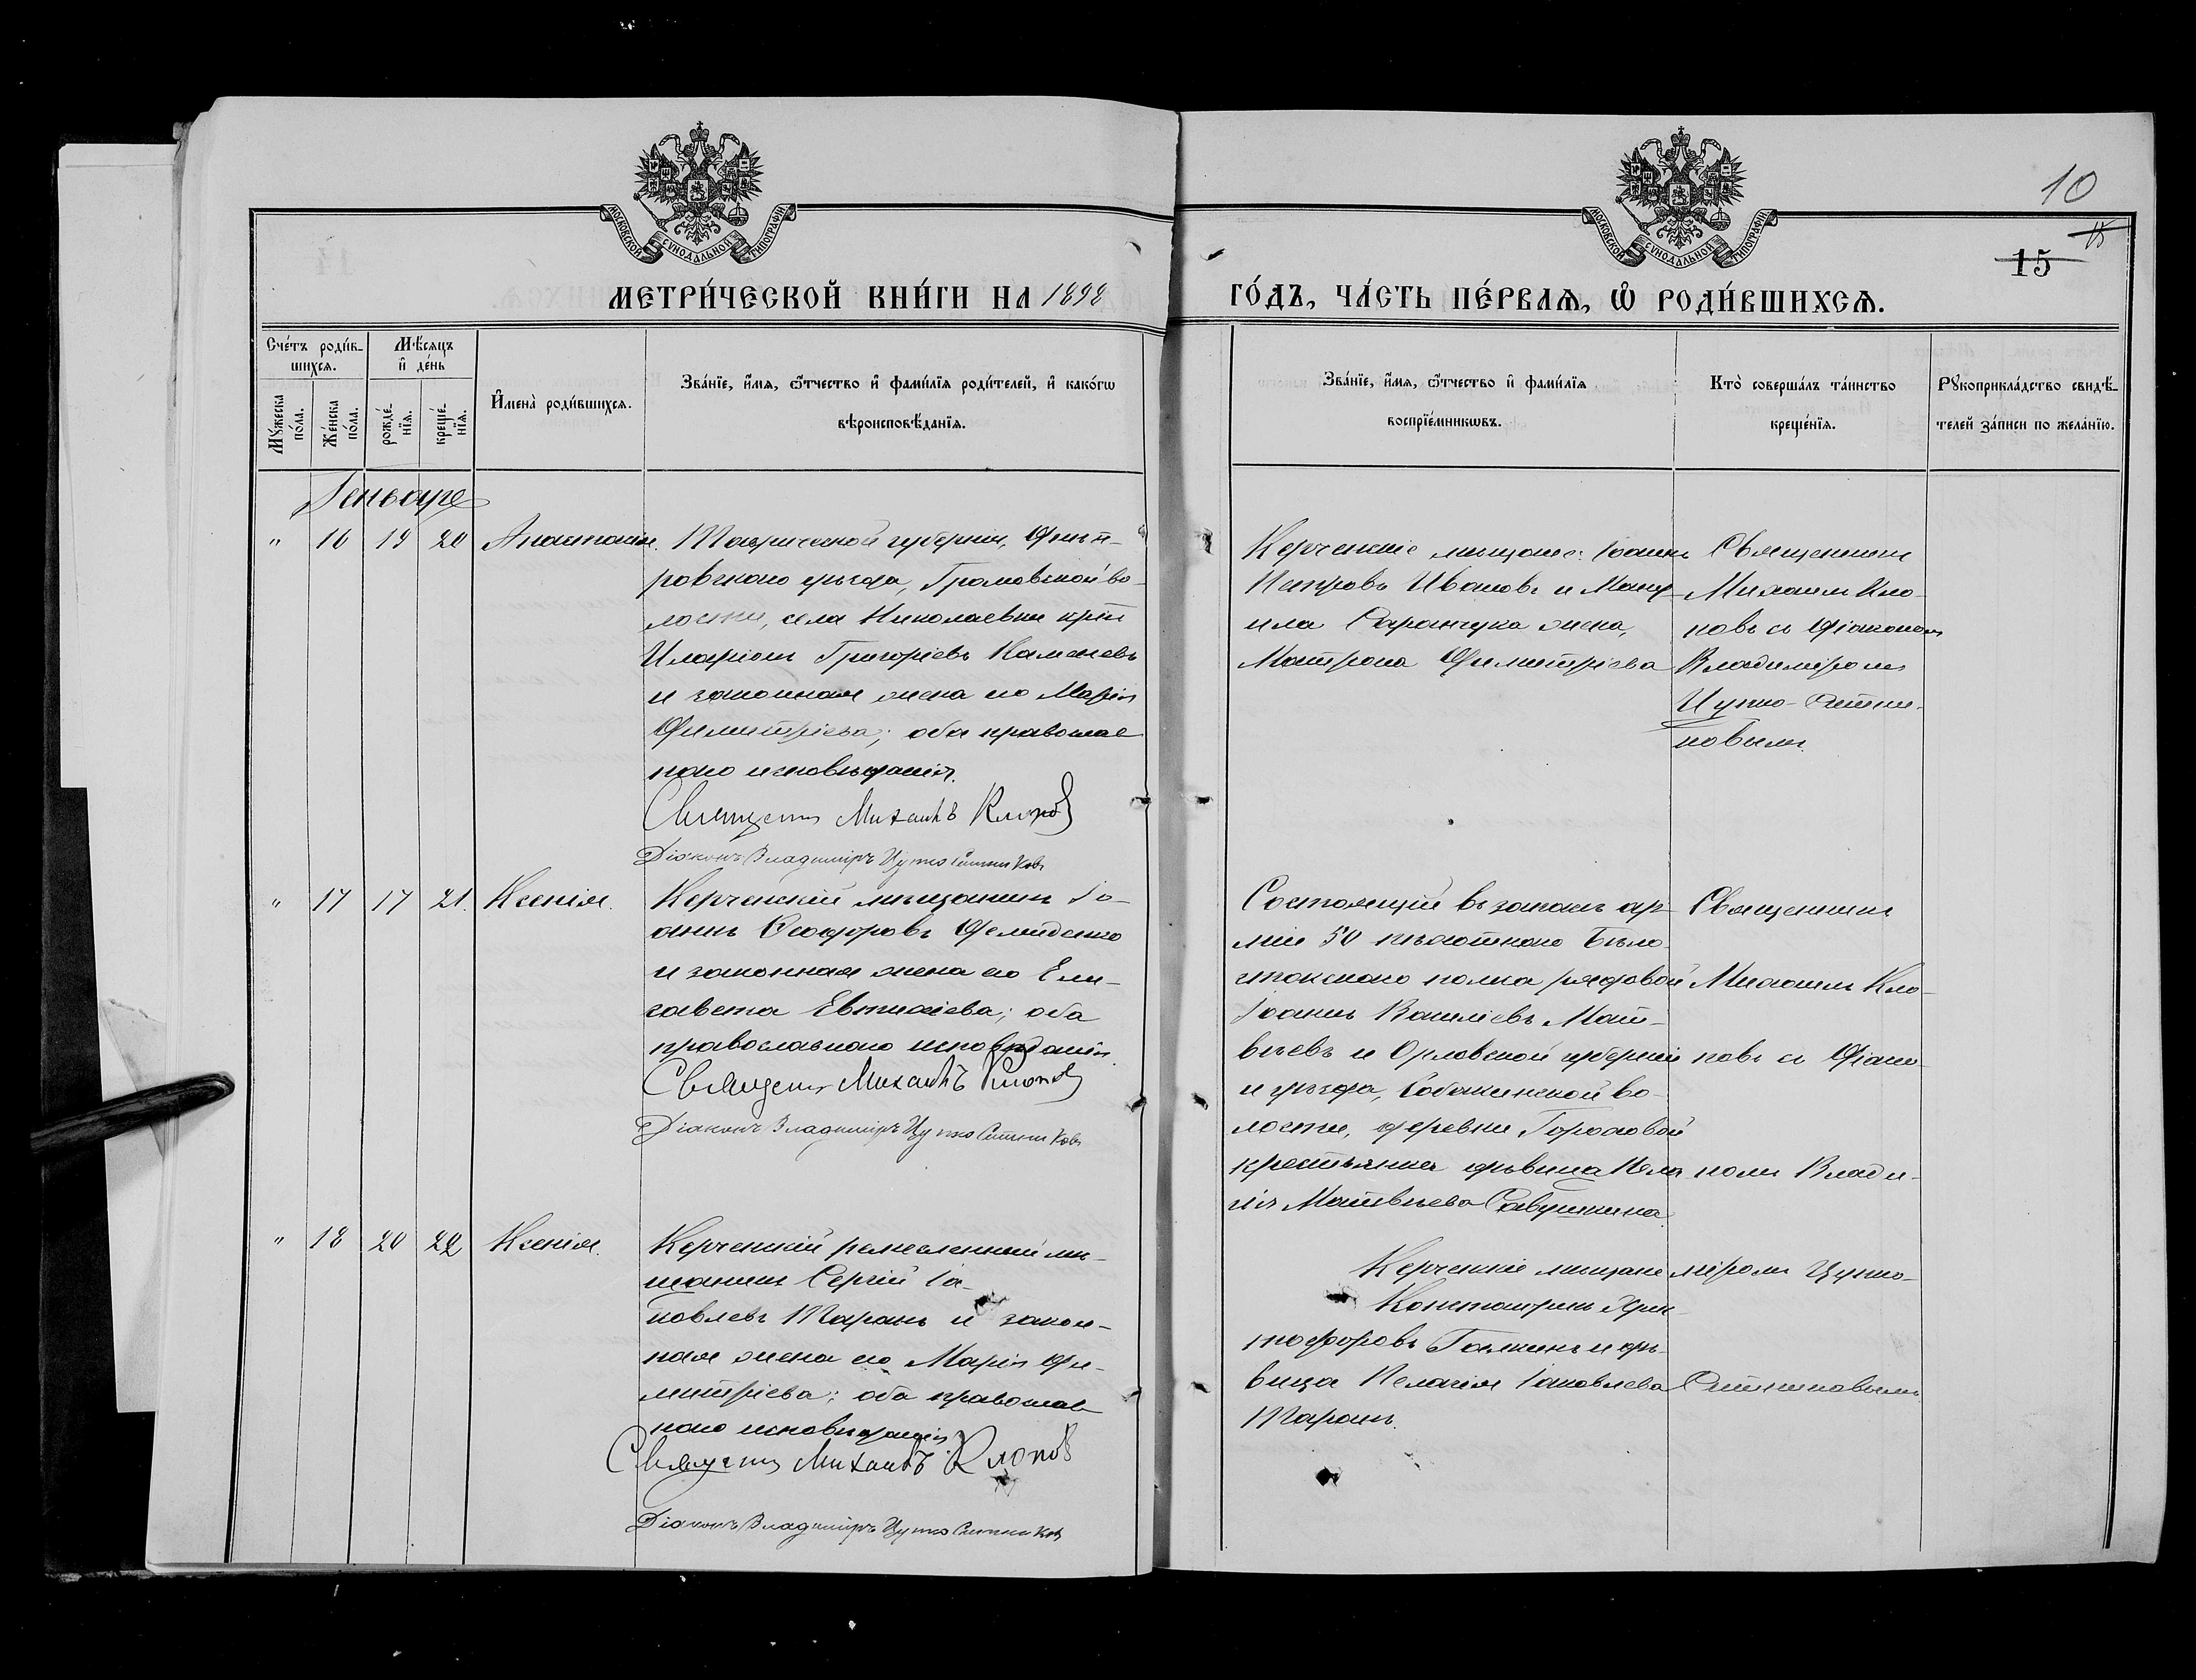 10
15
15
МОСКОВСКОЙ СУНОДАЛЬНОЙ ТИПОГРАФІИ
МОСКОВСКОЙ СУНОДАЛЬНОЙ ТИПОГРАФІИ
МЕТРИ́ЧЕСКОЙ КНИ́ГИ НА 1898
ГО́ДЪ, ЧА́СТЬ ПЕ́РВАѦ, Ѽ РОДИ́ВШИХСѦ.
Сче́тъ роди́в-
шихсѧ.
Му́жеска по́ла.
Же́нска по́ла.
Мѣ́сяцъ
и҆ де́нь
рожде́-нїя.
креще́-нїя.
И҆мена̀ роди́вшихсѧ.
Зва́нїе, и҆́мѧ, ѻ҆́тчество и҆ фами́лїѧ роди́телей, и҆ како́гѡ
вѣроисповѣ́данїѧ.
Зва́нїе, и҆́мѧ, ѻ҆́тчество и҆ фами́лїѧ
воспрїе́мникѡвъ.
Кто̀ соверша́лъ та́инство
креще́нїѧ.
Рꙋкоприкла́дство свидѣ́-
телей за́писи по жела́нїю.
Генваре
" 16 19 20 Анастасія. Таврической губерніи, Днѣп-
ровскаго уѣзда, Громовской во-
лости, села Николаевки кр̅нъ
Иларіонъ Григоріевъ Каменевъ
и законная жена его Марія
Димитріева; оба православ
наго исповѣданія.
Священникъ Михаилъ Клоповъ
Діаконъ Владиміръ Цупко Ситниковъ
Керченскіе мѣщане: Іоаннъ
Петровъ Ивановъ и Ману
ила Саранчука жена,
Матрона Димитріева
Священникъ
Михаилъ Кло-
повъ съ Діакономъ
Владиміромъ
Цупко-Ситни-
ковымъ.
" 17 17 21. Ксенія. Керченскій мѣщанинъ Іо-
аннъ Ѳеодоровъ Демиденко
и законная жена его Ели-
савета Евтихіева; оба
православнаго исповѣданія.
Священникъ Михаилъ Клоповъ
Діаконъ Владиміръ Цупко Ситниковъ
Состоящій въ запасѣ ар-
міи 50 пѣхотнаго Бѣло-
стокскаго полка рядовой
Іоаннъ Василіевъ Мат-
вѣевъ и Орловской губерніи
и уѣзда, Собакинской во-
лости, деревни Гороховой
крестьянка дѣвица Пела
гія Матвѣева Савушкина.
Священникъ
Михаилъ Кло-
повъ съ Діако-
номъ Влади-
міромъ Цупко-
Ситниковымъ.
" 18 20 22 Ксенія. Керченскій ремесленный мѣ-
щанинъ Сергій Іа-
ковлевъ Таранъ и закон-
ная жена его Марія Ди-
митріева; оба православ
наго исповѣданія.
Священникъ Михаилъ Клоповъ
Діаконъ Владиміръ Цупко Ситниковъ
Керченскіе мѣщане
Константинъ Хрис-
тофоровъ Галкинъ и дѣ-
вица Пелагія Іаковлева
Таранъ.